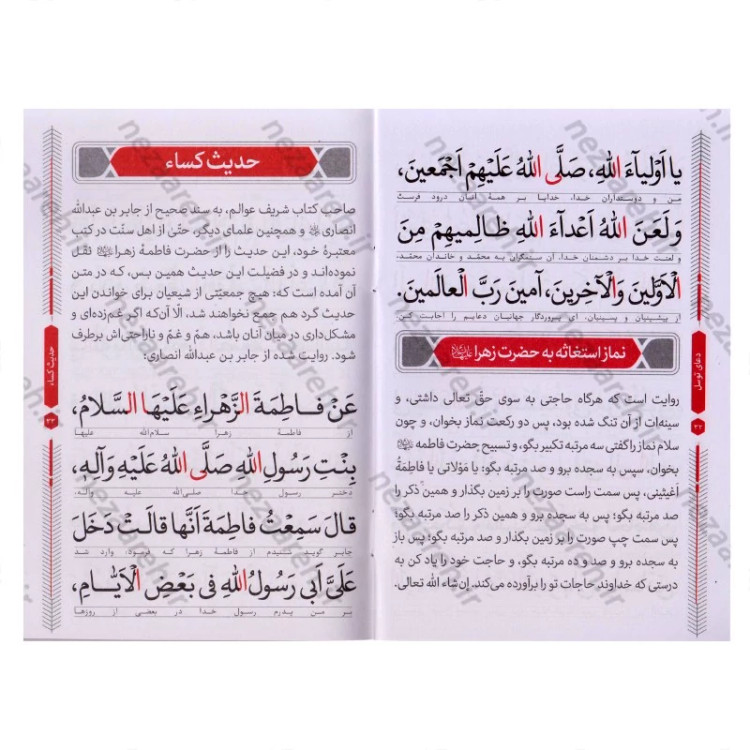 یا اَوْلِیآءَ اللهِ، صَلَّی اللهُ عَلَیْهِمْ اَجْمَعینَ،
من و دوستداران خدا، خدایا بر همهٔ آنان درود فرست
وَ لَعَنَ اللهُ اَعْدآءَ اللهِ ظالِمیهِمْ مِنَ
و لعنت خدا بر دشمنان خدا، آن ستمگران به محمّد و خاندان محمّد،
الْاَوَّلینَ وَالْآخِرینَ، آمینَ رَبَّ الْعالَمینَ.
از پیشینیان و پسینیان، ای پروردگار جهانیان دعایم را اجابت کن
نماز استغاثه به حضرت زهرا
روایت است که هرگاه حاجتی به سوی حقّ تعالی داشتی، و
سینه‌ات از آن تنگ شده بود، پس دو رکعت نماز بخوان، و چون
سلام نماز را گفتی سه مرتبه تکبیر بگو، و تسبیح حضرت فاطمه
بخوان، سپس به سجده برو و صد مرتبه بگو: یا مَوْلاتی یا فاطِمَةُ
اَغیثینی، پس سمت راست صورت را بر زمین بگذار و همین ذکر را
صد مرتبه بگو؛ پس به سجده برو و همین ذکر را صد مرتبه بگو؛
پس سمت چپ صورت را بر زمین بگذار و صد مرتبه بگو؛ پس باز
به سجده برو و صد و ده مرتبه بگو، و حاجت خود را یاد کن به
درستی که خداوند حاجات تو را برآورده می‌کند. إن شاء الله تعالی.
دعای توسل
۳۲
حدیث کساء
صاحب کتاب شریف عوالم، به سند صحیح از جابر بن عبدالله
انصاری و همچنین علمای دیگر، حتّی از اهل سنّت در کتب
معتبرهٔ خود، این حدیث را از حضرت فاطمهٔ زهرا نقل
نموده‌اند و در فضیلت این حدیث همین بس، که در متن
آن آمده است که: هیچ جمعیّتی از شیعیان برای خواندن این
حدیث گرد هم جمع نخواهند شد، الّا آن‌که اگر غم‌زده‌ای و
مشکل‌داری در میان آنان باشد، همّ و غمّ و ناراحتی‌اش برطرف
شود. روایت شده از جابر بن عبدالله انصاری:
عَنْ فاطِمَةَ الزَّهْراءِ عَلَیْهَا السَّلامُ،
از فاطمهٔ زهرا سلام‌الله علیها
بِنْتِ رَسُولِ اللهِ صَلَّی اللهُ عَلَیْهِ وَآلِهِ،
دختر رسول خدا صلی‌الله علیه وآله،
قالَ سَمِعْتُ فاطِمَةَ اَنَّها قالَتْ دَخَلَ
جابر گوید شنیدم از فاطمهٔ زهرا که فرمود وارد شد
عَلَیَّ اَبی رَسُولُ اللهِ فی بَعْضِ الْاَیّامِ،
بر من پدرم رسول خدا در بعضی از روزها
حدیث کساء
۳۳
nezaareh.ir